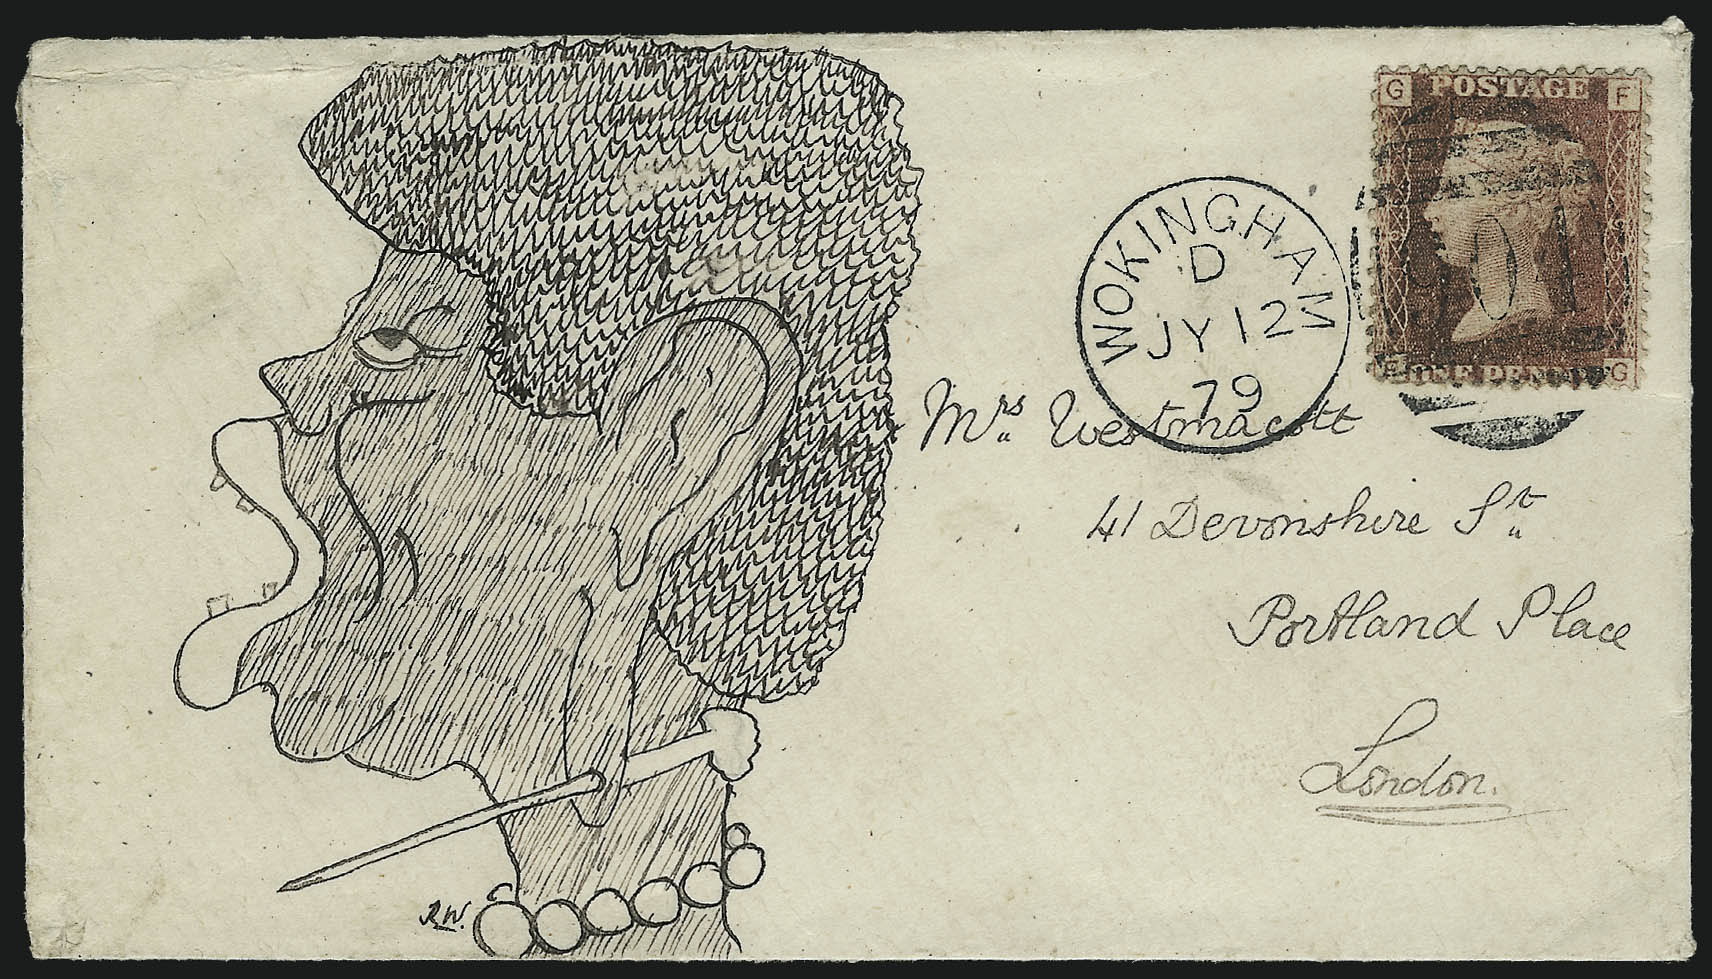 G POSTAGE F
WOKINGHAM
D
JY 12
79
901
F ONE PENNY G
Mrs Westmacott
41 Devonshire St
Portland Place
London.
R.W.